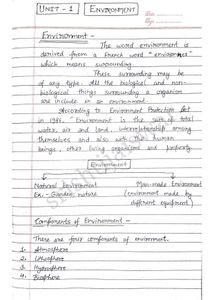 UNIT - 1 ENVIRONMENT
Environment -
The word environment is
derived from a French word "environner"
which means surrounding.
These surrounding may be
of any type. All the biological and non-
biological things surrounding a organism
are include in an environment.
According to Environment Protection Act
in 1986, "Environment is the sum of total
water, air and land, interrelationship among
themselves and also with the human
beings, other living organisms and property.
Environment
Natural Environment Man-made Environment
Ex. - Garden, nature (environment made by
different equipment)
Components of Environment -
There are four components of environment.
1. Atmosphere
2. Lithosphere
3. Hydrosphere
4. Biosphere